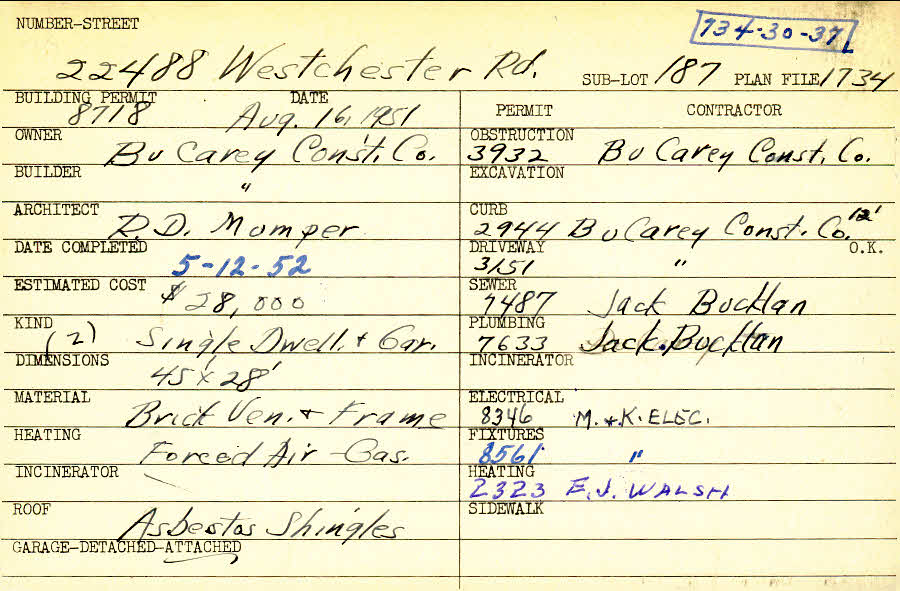 NUMBER-STREET
734-30-37
22488 Westchester Rd. SUB-LOT 187 PLAN FILE 1734
BUILDING PERMIT DATE
8718 Aug. 16, 1951
OWNER
Bu Carey Const. Co.
BUILDER
"
ARCHITECT
R.D. Mumper
DATE COMPLETED
5-12-52
ESTIMATED COST
$ 28,000
KIND
(2) Single Dwell. + Gar.
DIMENSIONS
45' x 28'
MATERIAL
Brick Ven. + Frame
HEATING
Forced Air - Gas.
INCINERATOR
ROOF
Asbestos Shingles
GARAGE-DETACHED-ATTACHED
PERMIT CONTRACTOR
OBSTRUCTION
3932 Bu Carey Const. Co.
EXCAVATION
CURB
2944 Bu Carey Const. Co. 12'
DRIVEWAY O.K.
3151 "
SEWER
7487 Jack Bucklan
PLUMBING
7633 Jack Bucklan
INCINERATOR
ELECTRICAL
8346 M.+K. ELEC.
FIXTURES
8561 "
HEATING
2323 E.J. WALSH
SIDEWALK